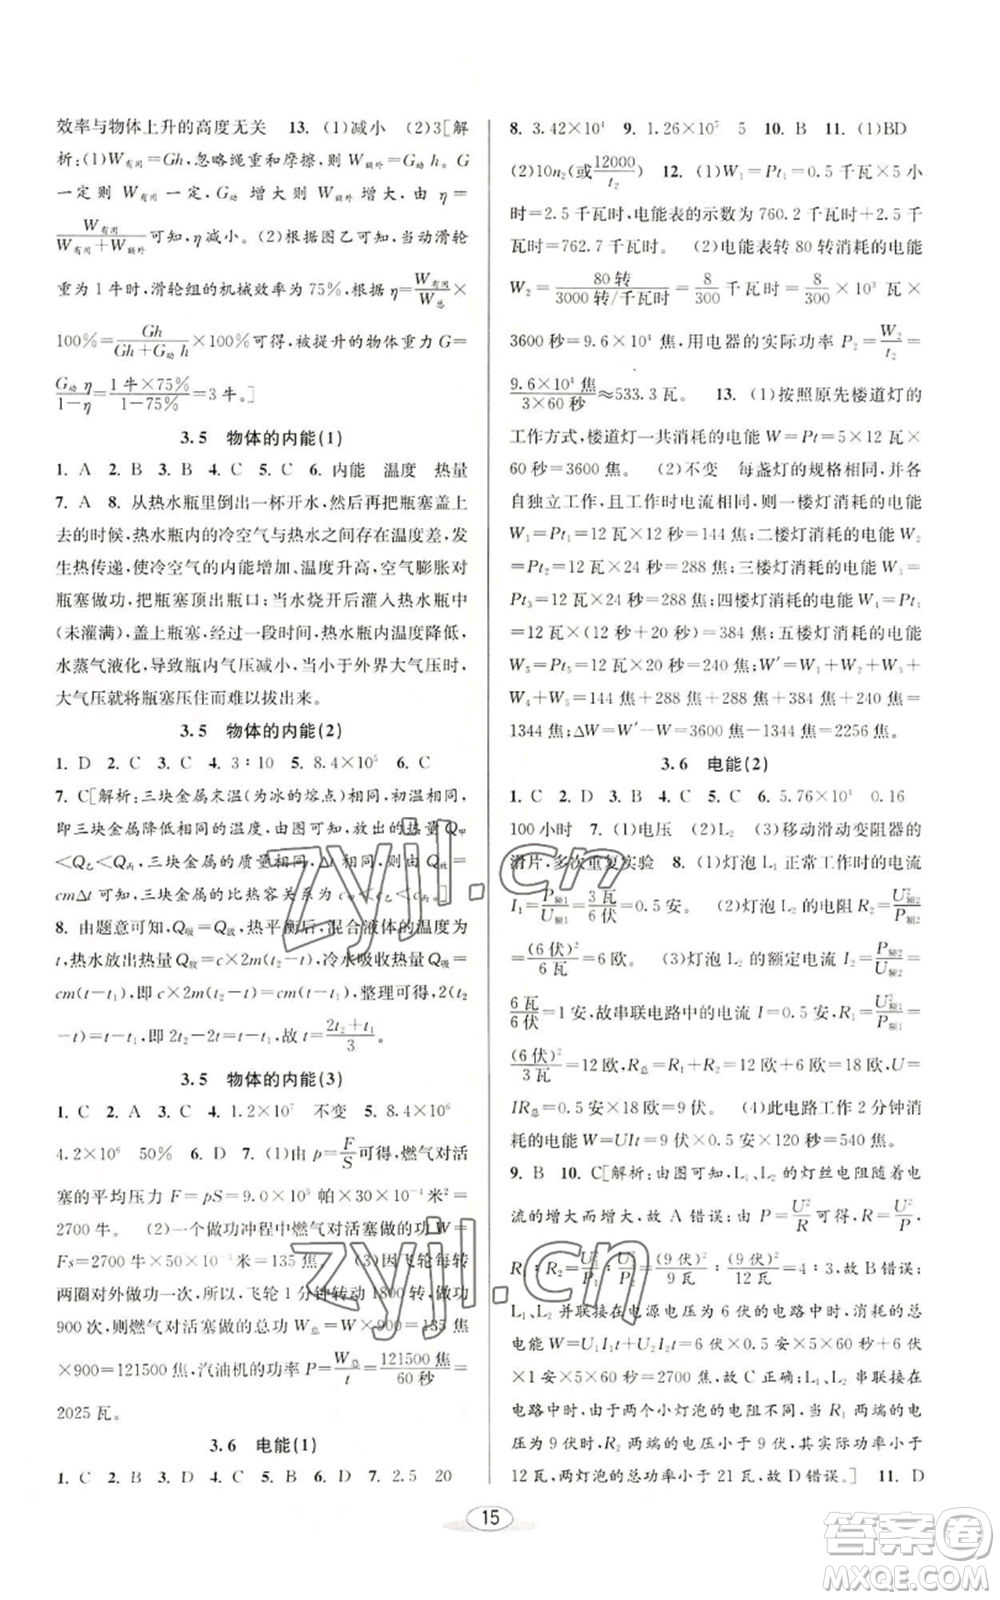 效率与物体上升的高度无关 13. (1)减小 (2)3[解
析:(1)W有用=Gh,忽略绳重和摩擦,则 W额外=G动 h。G
一定则 W有用一定,G动 增大则 W额外 增大,由 η=
W有用/(W有用+W额外) 可知,η减小。(2)根据图乙可知,当动滑轮
重为 1 牛时,滑轮组的机械效率为 75%,η=W有用/W总×
100%=Gh/(Gh+G动 h)×100%可得,被提升的物体重力 G=
G动 η/(1-η)=(1 牛×75%)/(1-75%)=3 牛。]
3.5 物体的内能(1)
1. A 2. B 3. B 4. C 5. C 6. 内能 温度 热量
7. A 8. 从热水瓶里倒出一杯开水,然后再把瓶塞盖上
去的时候,热水瓶内的冷空气与热水之间存在温度差,发
生热传递,使冷空气的内能增加、温度升高,空气膨胀对
瓶塞做功,把瓶塞顶出瓶口;当水烧开后灌入热水瓶中
(未灌满),盖上瓶塞,经过一段时间,热水瓶内温度降低,
水蒸气液化,导致瓶内气压减小,当小于外界大气压时,
大气压就将瓶塞压住而难以拔出来。
3.5 物体的内能(2)
1. D 2. C 3. C 4. 3∶10 5. 8.4×10⁵ 6. C
7. C[解析:三块金属末温(为冰的熔点)相同,初温相同,
即三块金属降低相同的温度,由图可知,放出的热量Q甲
<Q乙<Q丙,三块金属的质量相同,Δt 相同,根据 Q=
cmΔt 可知,三块金属的比热容关系为 c甲<c乙<c丙。]
8. 由题意可知,Q吸=Q放,热平衡后,混合液体的温度为
t,热水放出热量Q放=c×2m(t₂-t),冷水吸收热量Q吸=
cm(t-t₁),即 c×2m(t₂-t)=cm(t-t₁),整理可得,2(t₂
-t)=t-t₁,即 2t₂-2t=t-t₁,故 t=(2t₂+t₁)/3。
3.5 物体的内能(3)
1. C 2. A 3. C 4. 1.2×10⁷ 不变 5. 8.4×10⁶
4.2×10⁶ 50% 6. D 7. (1)由 p=F/S可得,燃气对活
塞的平均压力 F=pS=9.0×10⁵ 帕×30×10⁻⁴ 米²=
2700 牛。 (2)一个做功冲程中燃气对活塞做的功 W=
Fs=2700 牛×50×10⁻³ 米=135 焦。 (3)因飞轮每转
两圈对外做功一次,所以,飞轮 1 分钟转动 1800 转,做功
900 次,则燃气对活塞做的总功 W总=W×900=135 焦
×900=121500 焦,汽油机的功率 P=W总/t=121500 焦/60 秒=
2025 瓦。
3.6 电能(1)
1. C 2. B 3. D 4. C 5. B 6. D 7. 2.5 20
8. 3.42×10⁴ 9. 1.26×10⁵ 5 10. B 11. (1)BD
(2)10n₂(或12000/t₂) 12. (1)W₁=Pt₁=0.5 千瓦×5 小
时=2.5 千瓦时,电能表的示数为 760.2 千瓦时+2.5 千
瓦时=762.7 千瓦时。 (2)电能表转 80 转消耗的电能
W₂=80 转/(3000 转/千瓦时)=8/300千瓦时=8/300×10³ 瓦×
3600 秒=9.6×10⁴ 焦,用电器的实际功率 P₂=W₂/t₂=
9.6×10⁴ 焦/(3×60 秒)≈533.3 瓦。 13. (1)按照原先楼道灯的
工作方式,楼道灯一共消耗的电能 W=Pt=5×12 瓦×
60 秒=3600 焦。 (2)不变 每盏灯的规格相同,并且各
自独立工作,且工作时电流相同,则一楼灯消耗的电能
W₁=Pt₁=12 瓦×12 秒=144 焦;二楼灯消耗的电能W₂
=Pt₂=12 瓦×24 秒=288 焦;三楼灯消耗的电能 W₃=
Pt₃=12 瓦×24 秒=288 焦;四楼灯消耗的电能 W₄=
Pt₄=12 瓦×(12 秒+20 秒)=384 焦;五楼灯消耗的电能
W₅=Pt₅=12 瓦×20秒=240焦;W′=W₁+W₂+W₃+
W₄+W₅=144 焦+288 焦+288 焦+384 焦+240 焦=
1344 焦;ΔW=W′-W=3600 焦-1344 焦=2256 焦。
3.6 电能(2)
1. C 2. D 3. D 4. C 5. C 6. 5.76×10⁴ 0.16
100 小时 7. (1)电压 (2)L₂ (3)移动滑动变阻器的
滑片,多次重复实验 8. (1)灯泡 L₁ 正常工作时的电流
I₁=P额1/U额1=3 瓦/6 伏=0.5 安。 (2)灯泡 L₂ 的电阻 R₂=U²额2/P额2
=(6 伏)²/6 瓦=6 欧。 (3)灯泡 L₂ 的额定电流 I₂=P额2/U额2=
6 瓦/6 伏=1 安,故串联电路中的电流 I=0.5 安,R₁=U²额1/P额1=
(6 伏)²/3 瓦=12 欧,R总=R₁+R₂=12 欧+6 欧=18 欧,U=
IR总=0.5 安×18 欧=9 伏。 (4)此电路工作 2 分钟消
耗的电能 W=UIt=9 伏×0.5 安×120 秒=540 焦。
9. B 10. C[解析:由图可知,L₁、L₂ 的灯丝电阻随电
流的增大而增大,故 A 错误;由 P=U²/R可得,R=U²/P,
R₁∶R₂=U₁²/P₁∶U₂²/P₂=(9 伏)²/9 瓦∶(9 伏)²/12 瓦=4∶3,故 B 错误;
L₁、L₂ 并联接在电源电压为 6 伏的电路中时,消耗的电
能 W=U₁I₁t+U₂I₂t=6 伏×0.5 安×5×60 秒+6 伏
×1 安×5×60 秒=2700 焦,故 C 正确;L₁、L₂ 串联接在
电路中时,由于两个小灯泡的电阻不同,故 R₁ 两端的电
压为 9 伏时,R₂ 两端的电压小于 9 伏,其实际功率小于
12 瓦,两灯泡的总功率小于 21 瓦,故 D 错误。] 11. D
15
zyjl.cn
zyjl.cn
答案圈
MXQE.COM